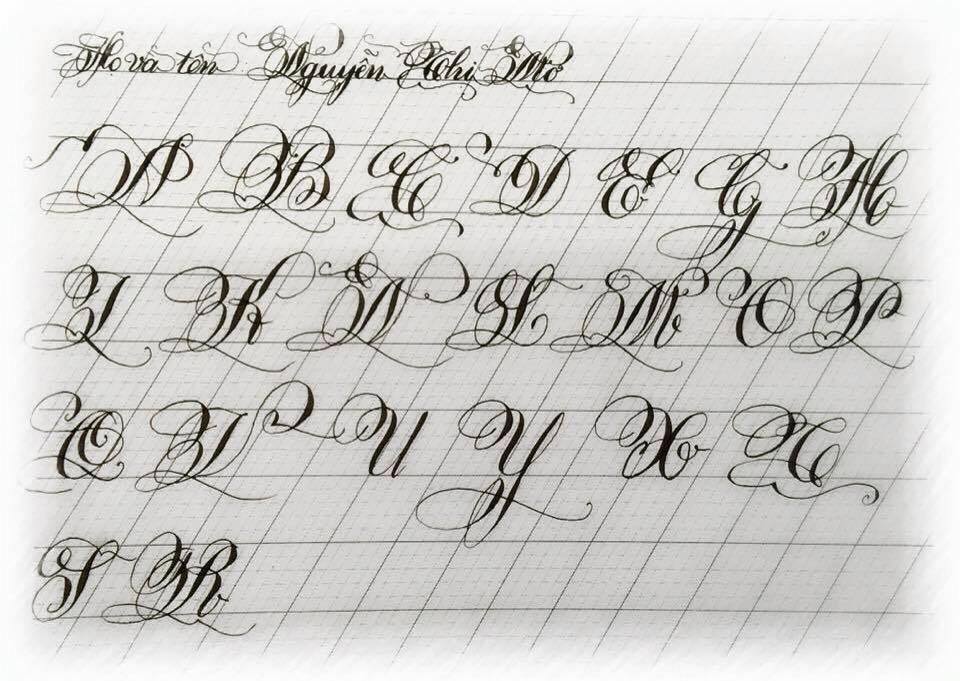 Họ và tên Nguyễn Thị Mơ
A B C D E G H
I K N L M O P
Q V U Y X T
S R